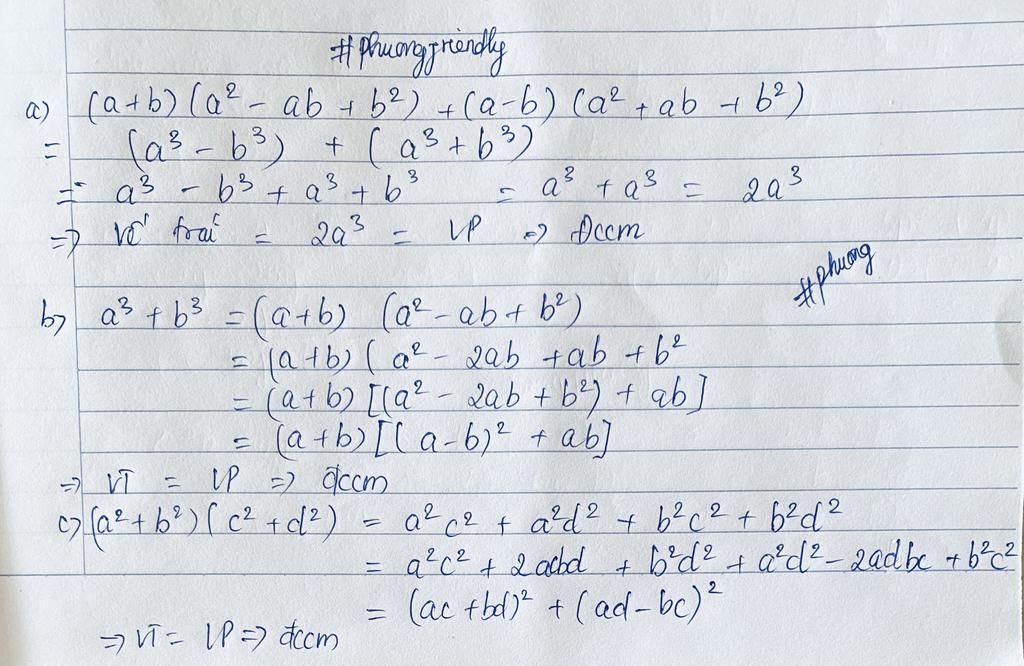 #phuongfriendly
a) (a+b)(a² - ab + b²) + (a-b)(a² + ab + b²)
= (a³ - b³) + (a³ + b³)
= a³ - b³ + a³ + b³ = a³ + a³ = 2a³
=> Vế trái = 2a³ = VP => Đccm
#phuong
b) a³ + b³ = (a+b) (a² - ab + b²)
= (a+b) (a² - 2ab + ab + b²
= (a+b) [(a² - 2ab + b²) + ab]
= (a+b) [(a-b)² + ab]
=> VT = VP => đccm
c) (a² + b²)(c² + d²) = a²c² + a²d² + b²c² + b²d²
= a²c² + 2acbd + b²d² + a²d² - 2adbc + b²c²
= (ac + bd)² + (ad - bc)²
=> VT = VP => đccm